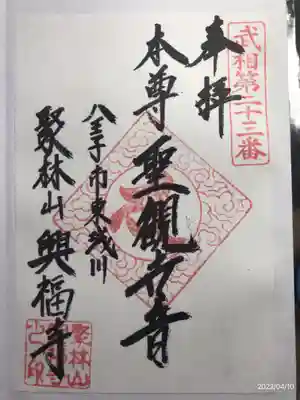 武相第二十三番
奉拝
本尊聖観世音
八王子市東浅川
聚林山興福寺
聚林山
2023/04/10